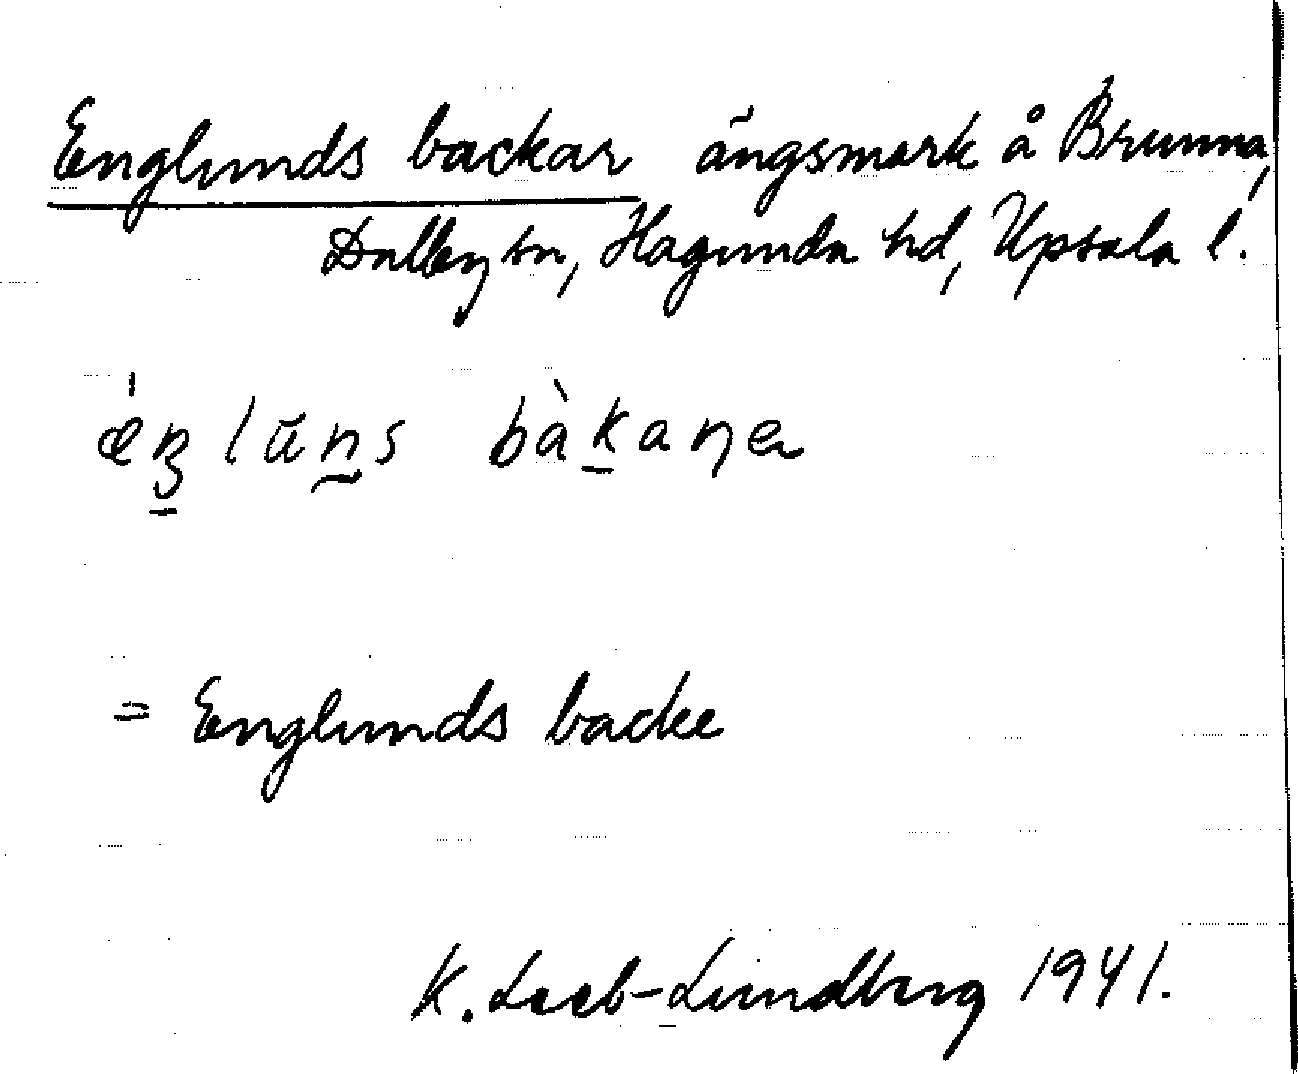 Englunds backar ängsmark å Brunna,
Dalby sn, Hagunda hd, Upsala l.
æ̀ŋlūns bàkaɳa
= Englunds backe
K. Leeb-Lundberg 1941.